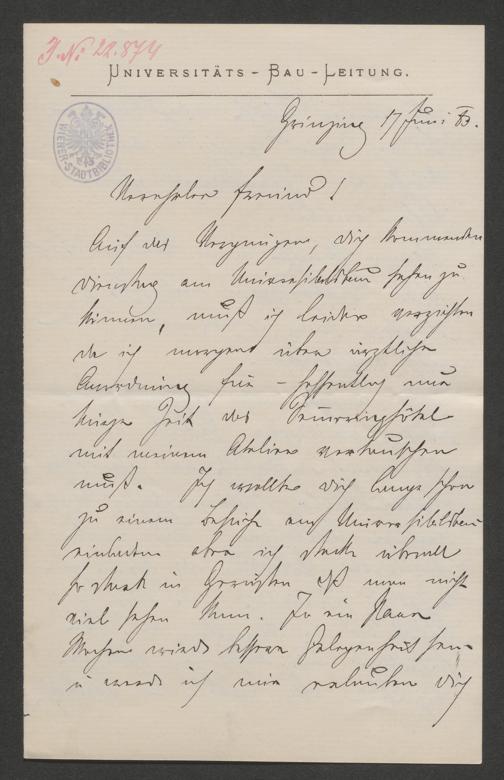 J. N. 22.874
UNIVERSITÄTS - BAU - LEITUNG.
WIENER-STADTBIBLIOTHEK
Grinzing 17 Juni 83.
Verehrter Freund!
Auf das Vergnügen, dich kommenden
Dienstag am Universitätsbau sehen zu
können, muß ich leider verzichten
da ich morgen über ärztliche
Anordnung für – hoffentlich nur
kurze Zeit das Semmeringhôtel
mit meinem Atelier vertauschen
muß. Ich wollte dich längst schon
zu einem Besuche am Universitätsbau
einladen aber ich stecke überall
so stark in Gerüsten daß man nicht
viel sehen kann. In ein Paar
Wochen wird bessere Gelegenheit sein
u werde ich mir erlauben dich